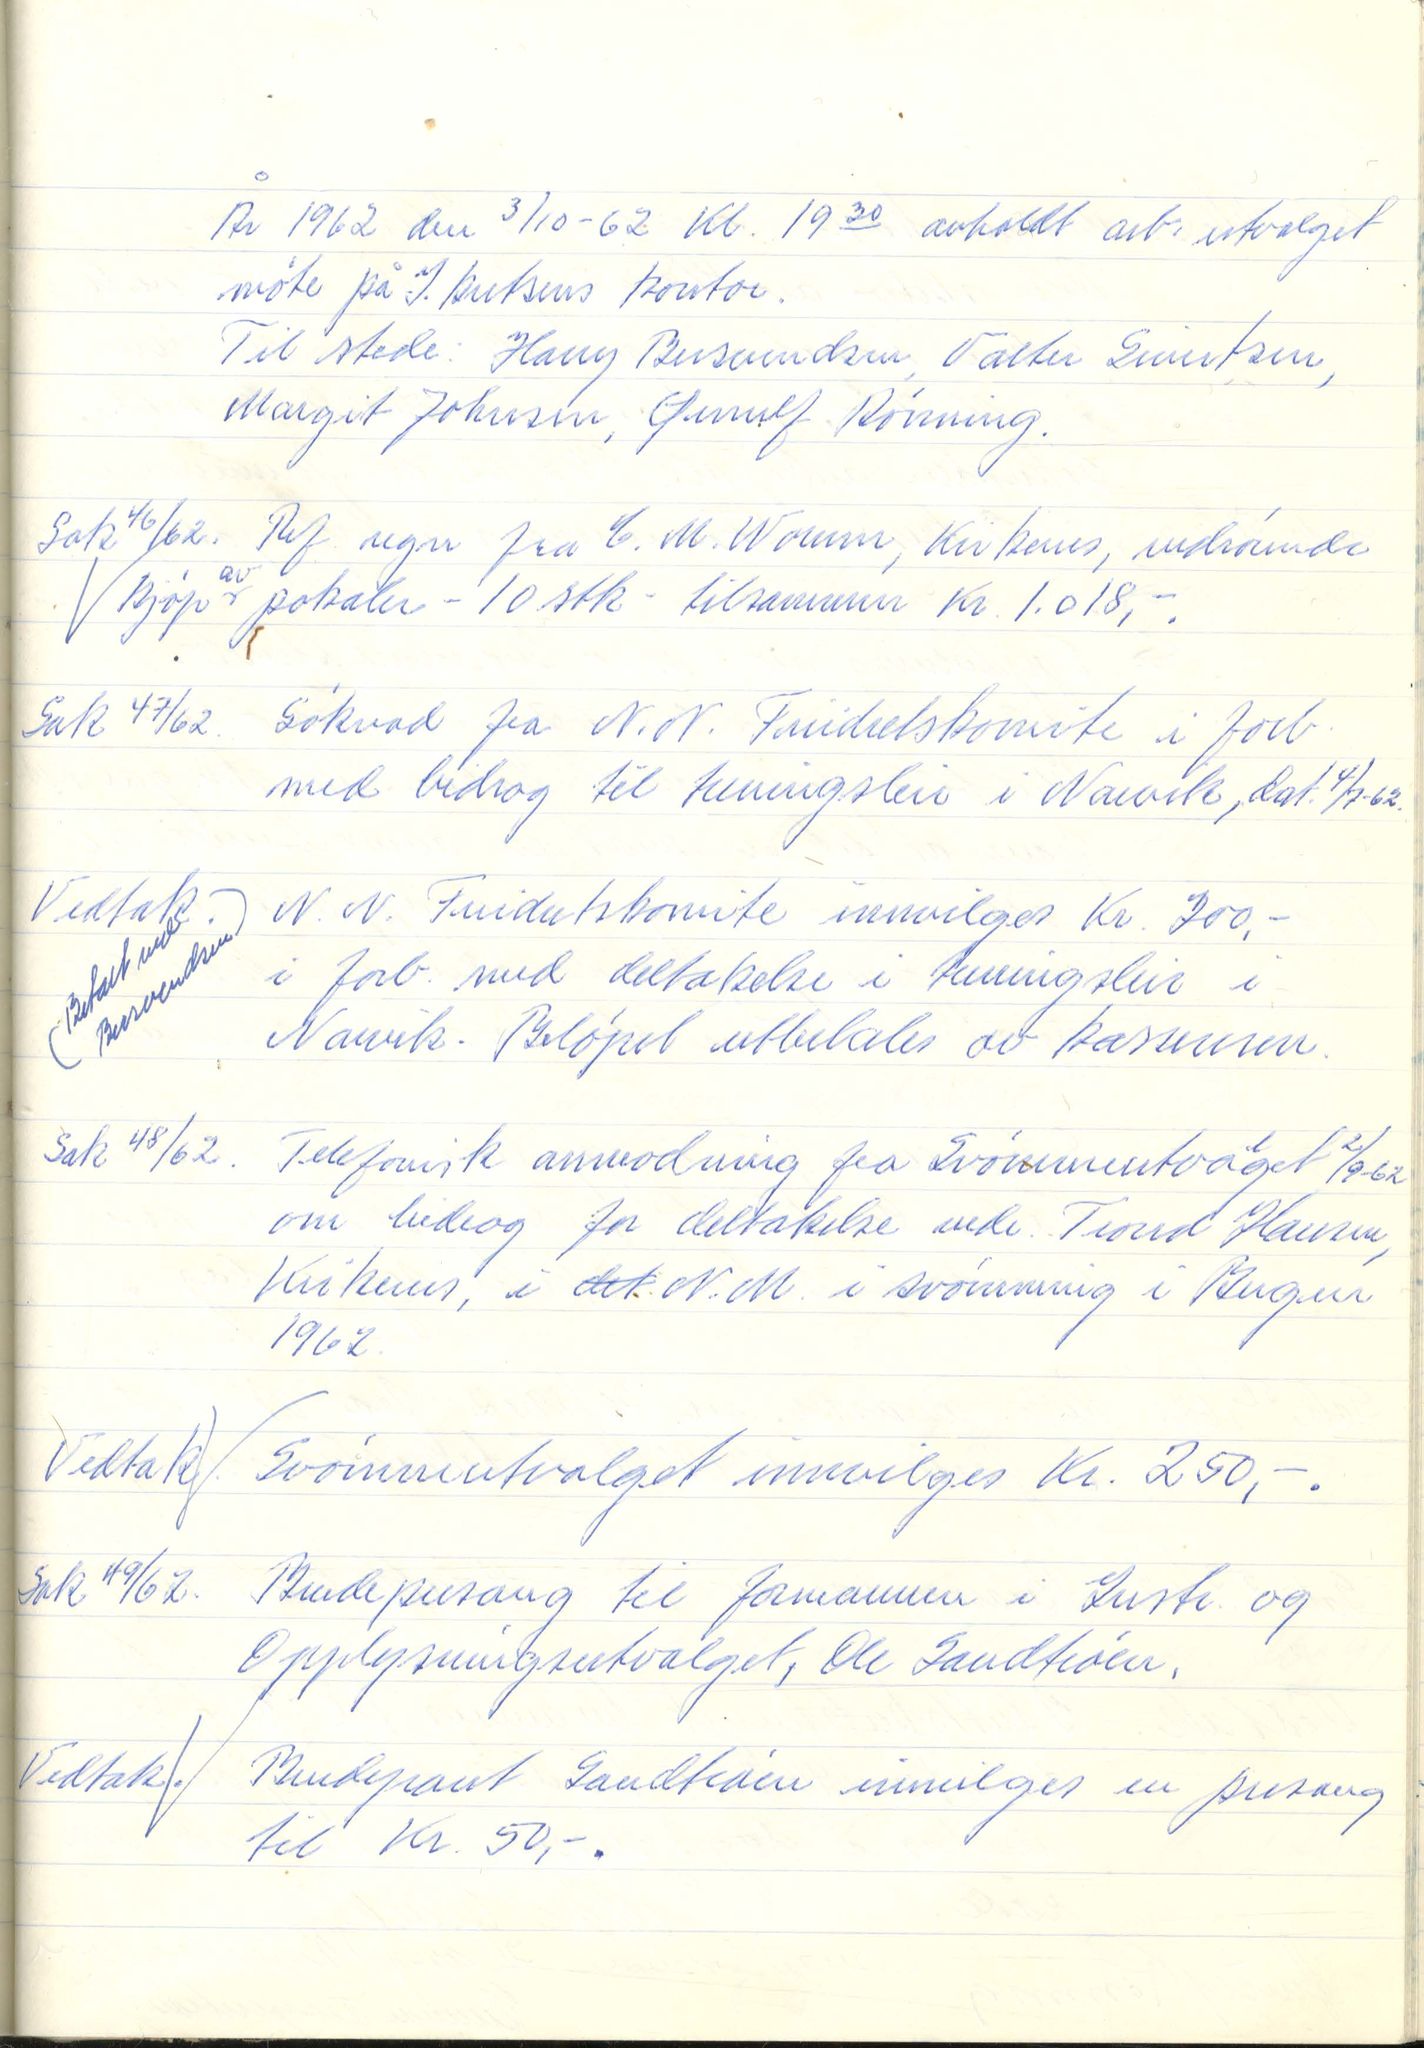 År 1962 den 3/10-62 Kl. 19 30 avholdt arb. utvalget
møte på J. Knutsens kontor.
Til stede: Harry Bersvendsen, Valter Sivertsen,
Margit Johnsen, Gunulf Rønning.
Sak 46/62. Ref. regn fra C. M. Worum, Kirkenes, vedrørende
kjøp av pokaler - 10 stk - tilsammen Kr. 1.018,-.
Sak 47/62. Søknad fra N.N. Friidretskomite i forb.
med bidrag til treningsleir i Narvik, dat. 4/7-62.
Vedtak. N. N. Friidretskomite innvilges Kr. 300,-
(Betalt ved Bersvendsen)
i forb. med deltakelse i treningsleir i
Narvik. Beløpet utbetales av kasseren.
Sak 48/62. Telefonisk anmodning fra Svømmeutvalget 2/9-62
om bidrag for deltakelse vedr. Trond Hansen,
Kirkenes, i det N.M. i svømming i Bergen
1962.
Vedtak. Svømmeutvalget innvilges Kr. 250,-.
Sak 49/62. Brudepresang til formannen i Instr. og
Opplysningsutvalget, Ole Sandtrøen.
Vedtak. Brudeparet Sandtrøen innvilges en presang
til Kr. 50,-.